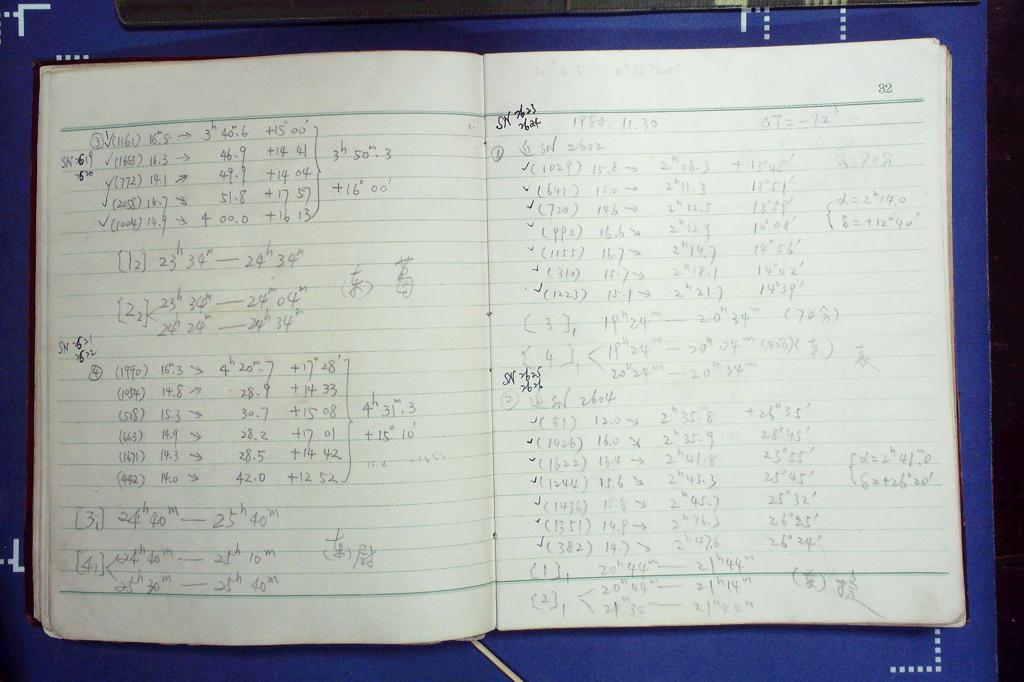 ③ √(1161) 16.5 → 3ʰ 40ᵐ.6 +15°00′
SN 2619
2620
√(1663) 16.3 → 46.9 +14 41
3ʰ 50ᵐ.3
√(772) 14.1 → 49.9 +14 04
√(2058) 16.7 → 51.8 +17 57
+16°00′
√(1004) 14.9 → 4 00.0 +16 13
[1₂] 23ʰ 34ᵐ — 24ʰ 34ᵐ
[2₂] 23ʰ 34ᵐ — 24ʰ 04ᵐ
24ʰ 24ᵐ — 24ʰ 34ᵐ
SN 2621
2622
④ (1990) 16.3 → 4ʰ 20ᵐ.7 +17°28′
(1054) 14.8 → 28.9 +14 33
(518) 15.3 → 30.7 +15 08
4ʰ 31ᵐ.3
(663) 14.9 → 28.2 +17 01
+15°10′
(1671) 14.3 → 28.5 +14 42
(442) 14.0 → 42.0 +12 52
[3₁] 24ʰ 40ᵐ — 25ʰ 40ᵐ
[4₁] 24ʰ 40ᵐ — 25ʰ 10ᵐ
25ʰ 30ᵐ — 25ʰ 40ᵐ
32
SN 2623
2624
1980. 11. 30 ΔT = -12ˢ
① SN 2602
√(1029) 15.8 → 2ʰ06.3 +13°45′
√(641) 15.0 → 2ʰ11.3 13°51′
√(720) 14.6 → 2ʰ12.5
α=2ʰ14.0
δ=+12°40′
√(992) 16.6 → 10°08′
√(1155) 16.7 → 2ʰ14.7 14°56′
√(310) 15.7 → 2ʰ18.1 14°02′
√(1223) 15.1 → 2ʰ21.7 14°39′
[3]₁ 19ʰ24ᵐ — 20ʰ34ᵐ (70分)
[4]₁ 19ʰ24ᵐ — 20ʰ04ᵐ
20ʰ24ᵐ — 20ʰ34ᵐ
SN 2625
2626
② SN 2604
√(81) 12.0 → 2ʰ35.8 +26°35′
√(1426) 16.0 → 2ʰ35.9 28°45′
√(1622) 16.4 → 2ʰ41.8 23°55′
α=2ʰ41.0
δ=+26°20′
√(1244) 15.6 → 2ʰ43.3 25°45′
√(1436) 15.8 → 2ʰ45.7 25°32′
√(1351) 14.9 → 2ʰ46.3 26°25′
√(382) 14.7 → 2ʰ47.6 26°24′
[1]₁ 20ʰ44ᵐ — 21ʰ44ᵐ
[2]₁ 20ʰ44ᵐ — 21ʰ14ᵐ
21ʰ34ᵐ — 21ʰ44ᵐ